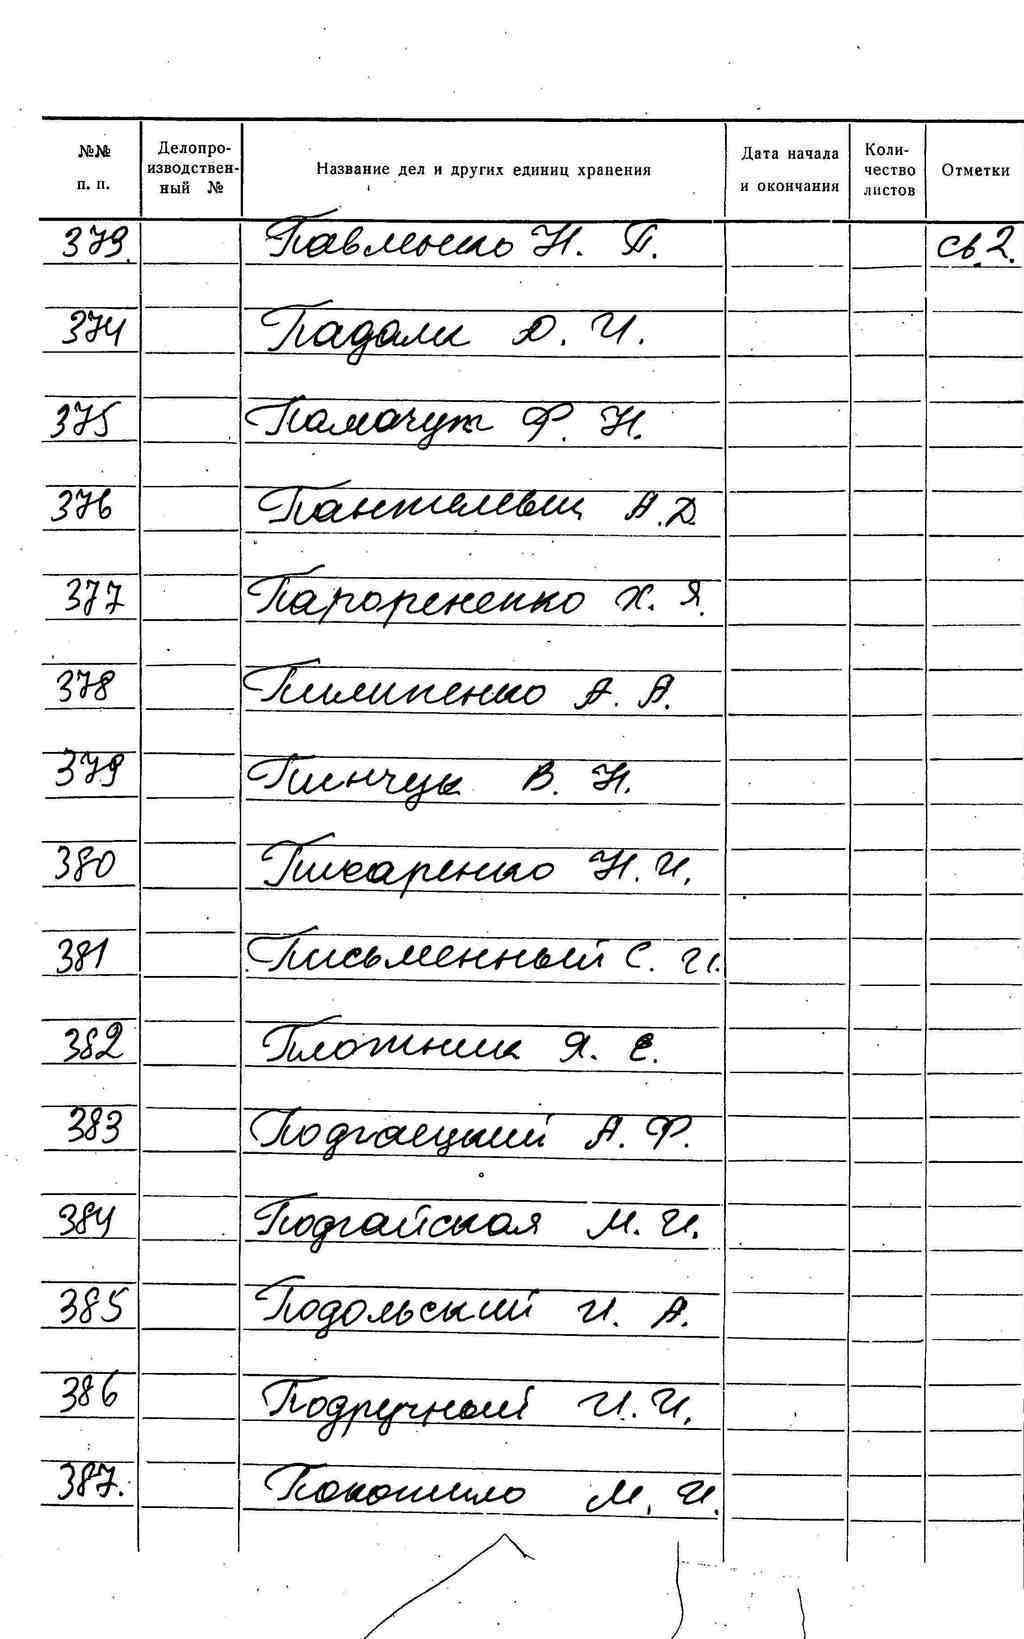 №№ п. п. Делопроизводственный № Название дел и других единиц хранения Дата начала и окончания Количество листов Отметки
373. Павленко Н. П. св.2.
374 Падалк Д. И.
375 Памачук Ф. Н.
376 Пантелевич А.Д.
377 Парорененко Х. Я.
378 Пилипенко А. А.
379 Пинчук В. Н.
380 Писаренко Н. И.
381 Письменный С. И.
382 Плотник Я. Е.
383 Подгаецкий А. Ф.
384 Подгайская М. И.
385 Подольский И. А.
386 Подручный И. И.
387. Покотило М. И.